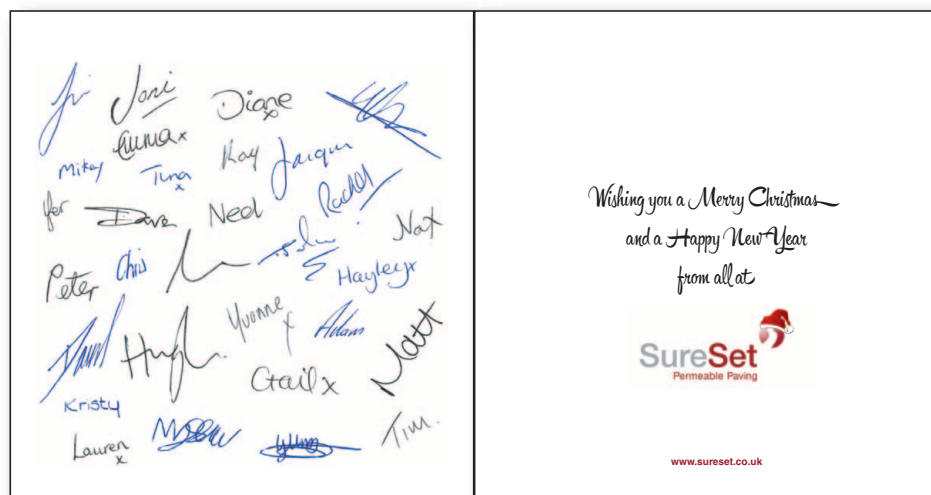 Joni
Diane
x
Emma x
Mikey
Tina
x
Kay
Jacqui
Rachel
Dave
Ned
Nat
Peter
Chris
Hayley x
Yvonne
x
Adam
Matt
David
Hugh
Gail x
Kristy
Lauren
x
Tim.
Wishing you a Merry Christmas
and a Happy New Year
from all at
SureSet
Permeable Paving
www.sureset.co.uk